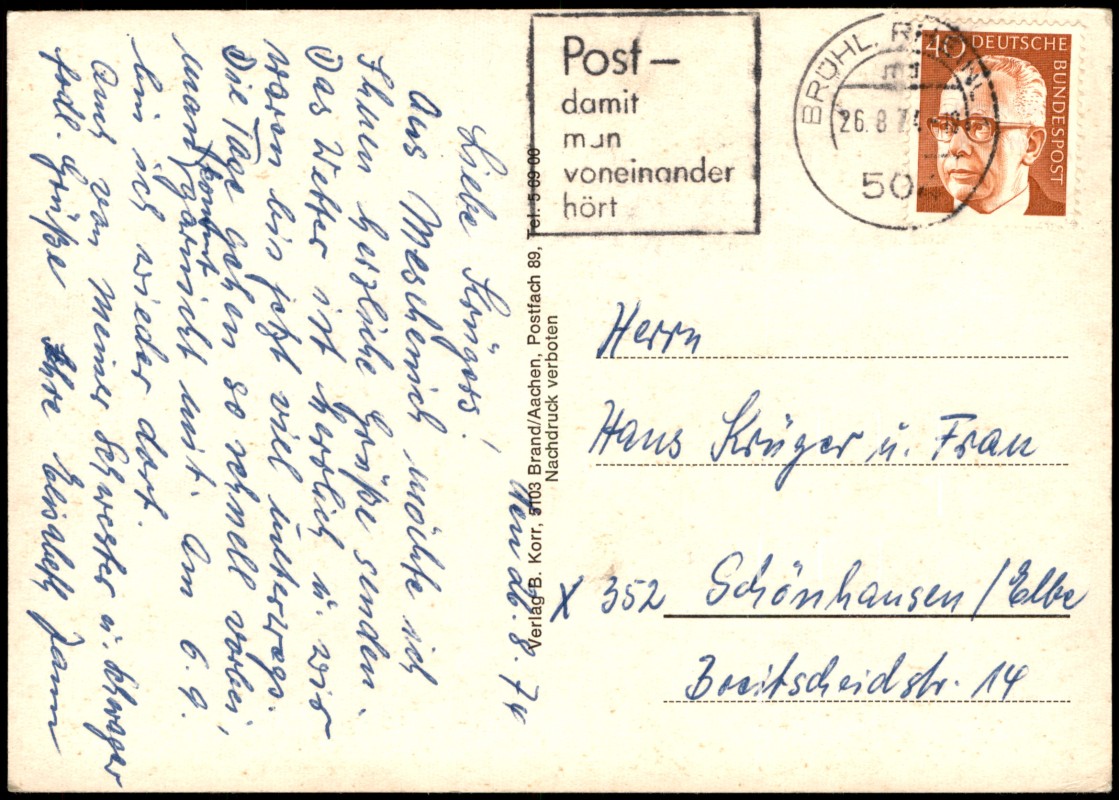 den 26.8.74
Liebe Krügers!
Aus Meschenich möchte ich
Ihnen herzliche Grüße senden.
Das Wetter ist herrlich u. wir
waren bis jetzt viel unterwegs.
Die Tage gehen so schnell vorbei,
man kommt garnicht mit. Am 6.9.
bin ich wieder dort.
Auch von meiner Schwester u. Schwager
frdl. Grüße Ihre Elisabeth
Verlag B. Korr, 5103 Brand/Aachen, Postfach 89, Tel. 5 69 00
Nachdruck verboten
Post –
damit
man
voneinander
hört
BRÜHL, RHEINL
26.8.74
50
40 DEUTSCHE
BUNDESPOST
Herrn
Hans Krüger u. Frau
X 352 Schönhausen/Elbe
Breitscheidstr. 14